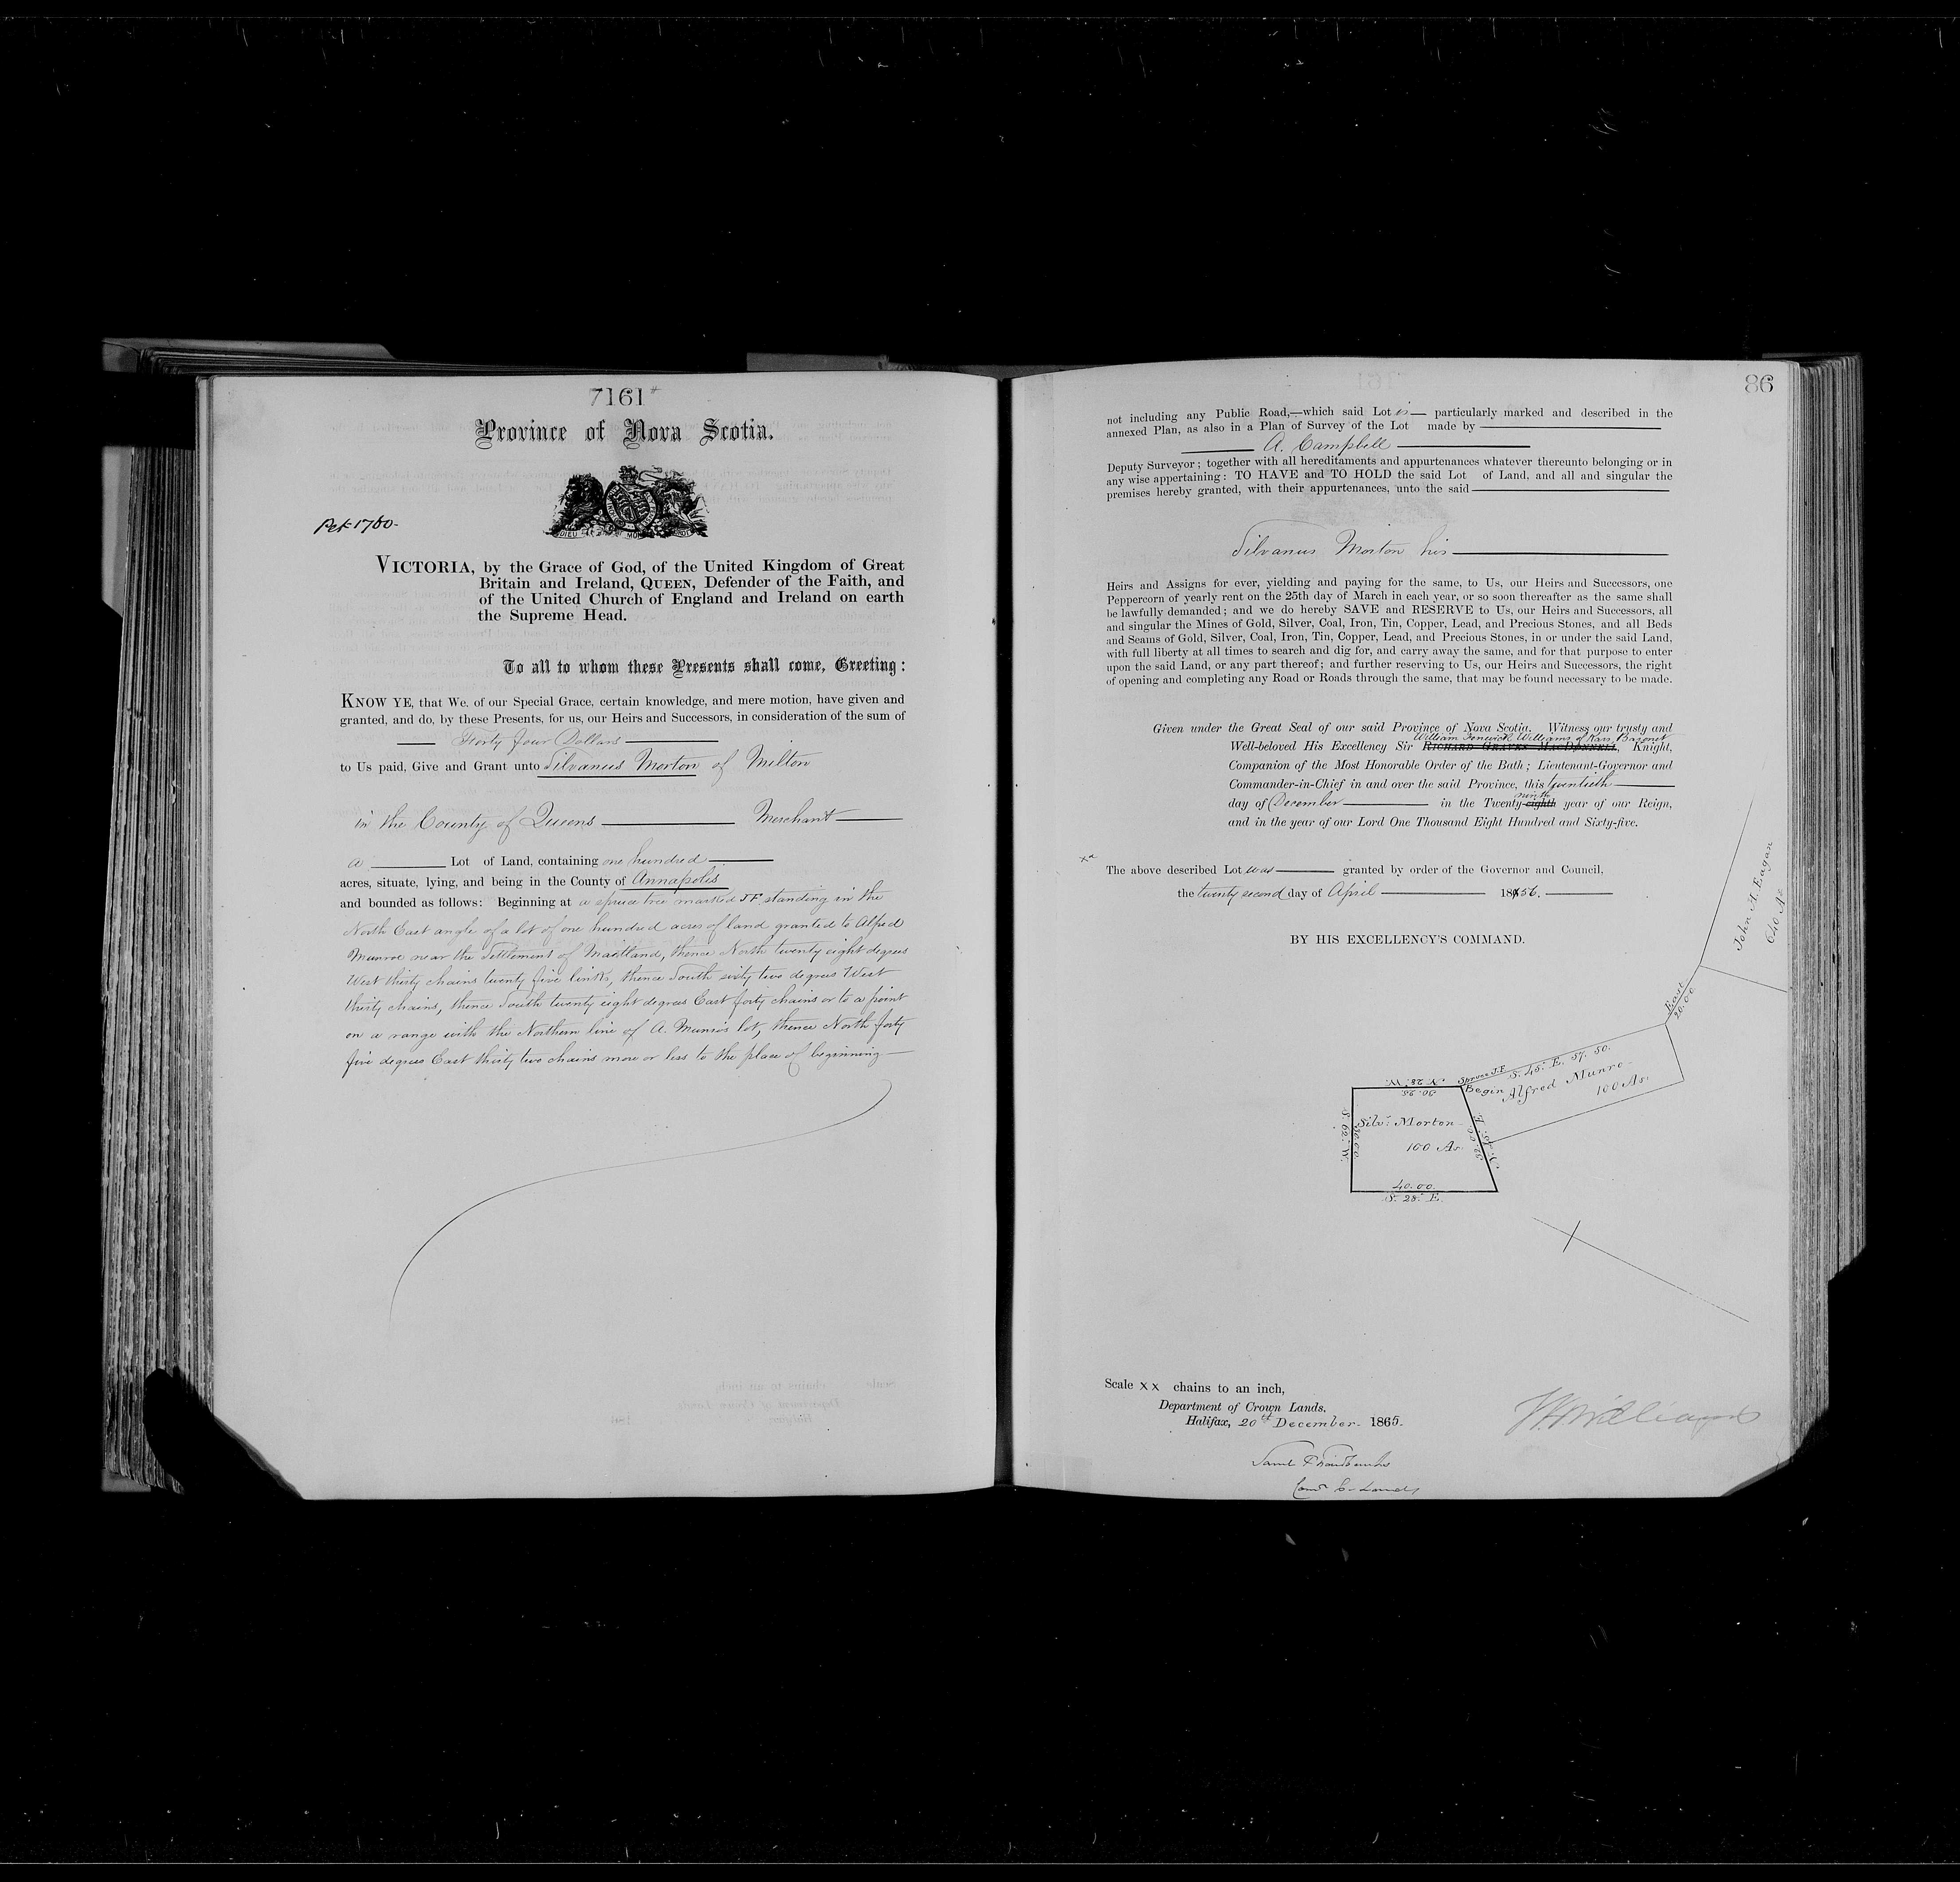 7161
Province of Nova Scotia.
Pet 1760.
VICTORIA, by the Grace of God, of the United Kingdom of Great
Britain and Ireland, QUEEN, Defender of the Faith, and
of the United Church of England and Ireland on earth
the Supreme Head.
To all to whom these Presents shall come, Greeting:
KNOW YE, that We, of our Special Grace, certain knowledge, and mere motion, have given and
granted, and do, by these Presents, for us, our Heirs and Successors, in consideration of the sum of
Forty four Dollars
to Us paid, Give and Grant unto Silvanus Morton of Milton
in the County of Queens Merchant
a Lot of Land, containing one hundred
acres, situate, lying, and being in the County of Annapolis
and bounded as follows: Beginning at a spruce tree marked J F. standing in the
North East angle of a lot of one hundred acres of land granted to Alfred
Munroe near the Settlement of Maitland, thence North twenty eight degrees
West thirty chains twenty five links, thence South sixty two degrees West
thirty chains, thence South twenty eight degrees East forty chains or to a point
on a range with the Northern line of A. Munro's lot, thence North forty
five degrees East thirty two chains more or less to the place of beginning
86
not including any Public Road,—which said Lot is particularly marked and described in the
annexed Plan, as also in a Plan of Survey of the Lot made by
A. Campbell
Deputy Surveyor; together with all hereditaments and appurtenances whatever thereunto belonging or in
any wise appertaining: TO HAVE and TO HOLD the said Lot of Land, and all and singular the
premises hereby granted, with their appurtenances, unto the said
Silvanus Morton his
Heirs and Assigns for ever, yielding and paying for the same, to Us, our Heirs and Successors, one
Peppercorn of yearly rent on the 25th day of March in each year, or so soon thereafter as the same shall
be lawfully demanded; and we do hereby SAVE and RESERVE to Us, our Heirs and Successors, all
and singular the Mines of Gold, Silver, Coal, Iron, Tin, Copper, Lead, and Precious Stones, and all Beds
and Seams of Gold, Silver, Coal, Iron, Tin, Copper, Lead, and Precious Stones, in or under the said Land,
with full liberty at all times to search and dig for, and carry away the same, and for that purpose to enter
upon the said Land, or any part thereof; and further reserving to Us, our Heirs and Successors, the right
of opening and completing any Road or Roads through the same, that may be found necessary to be made.
Given under the Great Seal of our said Province of Nova Scotia. Witness our trusty and
William Fenwick Williams of Kars, Baronet
Well-beloved His Excellency Sir RICHARD GRAVES MACDONNELL, Knight,
Companion of the Most Honorable Order of the Bath; Lieutenant-Governor and
Commander-in-Chief in and over the said Province, this twentieth
ninth
day of December in the Twenty-eighth year of our Reign,
and in the year of our Lord One Thousand Eight Hundred and Sixty-five.
The above described Lot was granted by order of the Governor and Council,
the twenty second day of April 1856.
BY HIS EXCELLENCY'S COMMAND.
John H. Eagan
East
20.00
Spruce J.F.
S. 45° E. 57. 50.
Begin
Alfred Munro
100 As.
N. 28° W.
30. 25
Silv: Morton
100 As.
S. 62° W.
30.00
N. 45° E.
32.00
40.00.
S. 28° E.
Scale XX chains to an inch,
Department of Crown Lands,
Halifax, 20th December. 1865.
W F Williams